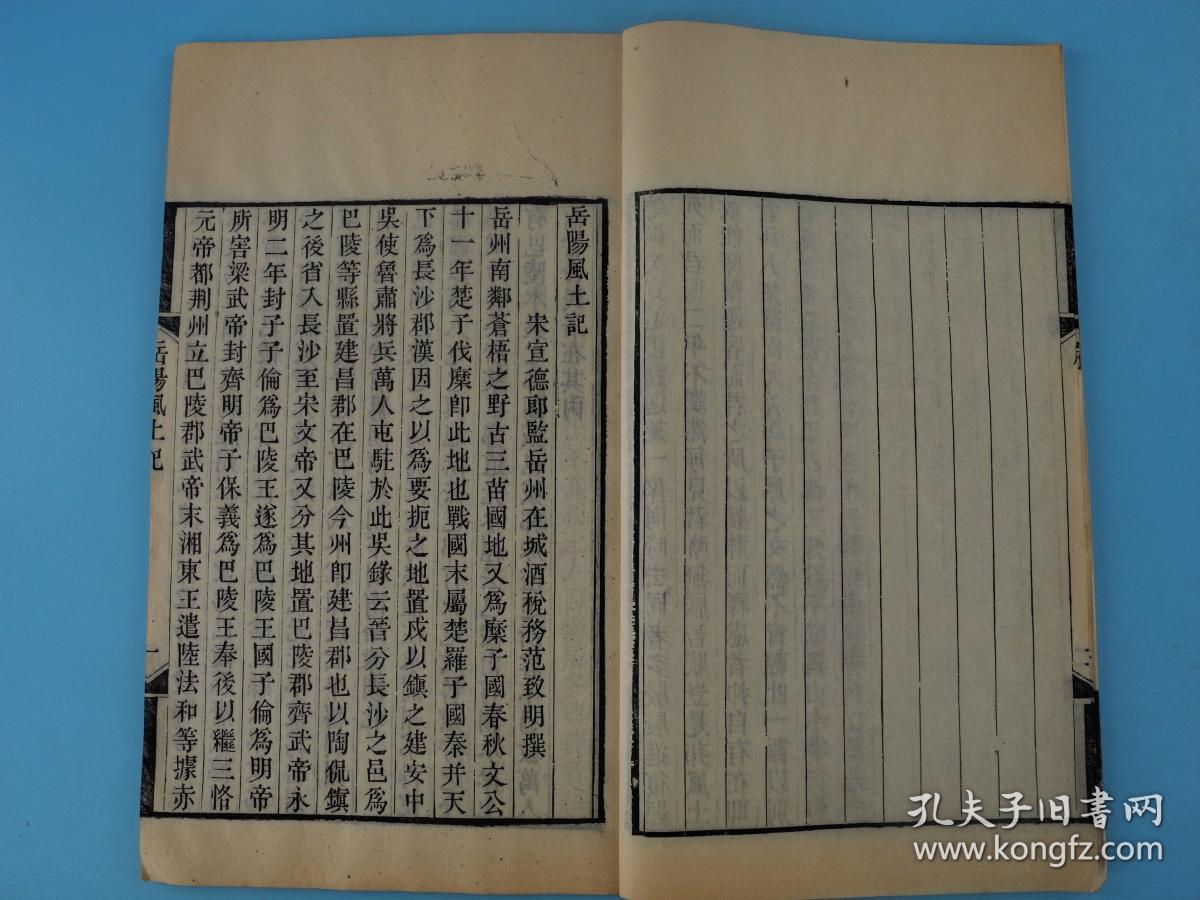 岳陽風土記
宋宣德郎監岳州在城酒稅務范致明撰
岳州南鄰蒼梧之野古三苗國地又為麋子國春秋文公
十一年楚子伐麋卽此地也戰國末屬楚羅子國秦并天
下為長沙郡漢因之以為要扼之地置戍以鎭之建安中
吳使魯肅將兵萬人屯駐於此吳錄云晉分長沙之邑為
巴陵等縣置建昌郡在巴陵今州卽建昌郡也以陶侃鎭
之後省入長沙至宋文帝又分其地置巴陵郡齊武帝永
明二年封子子倫為巴陵王遂為巴陵王國子倫為明帝
所害梁武帝封齊明帝子保義為巴陵王奉後以繼三恪
元帝都荆州立巴陵郡武帝末湘東王遣陸法和等據赤
岳陽風土記
一
孔夫子旧书网
www.kongfz.com